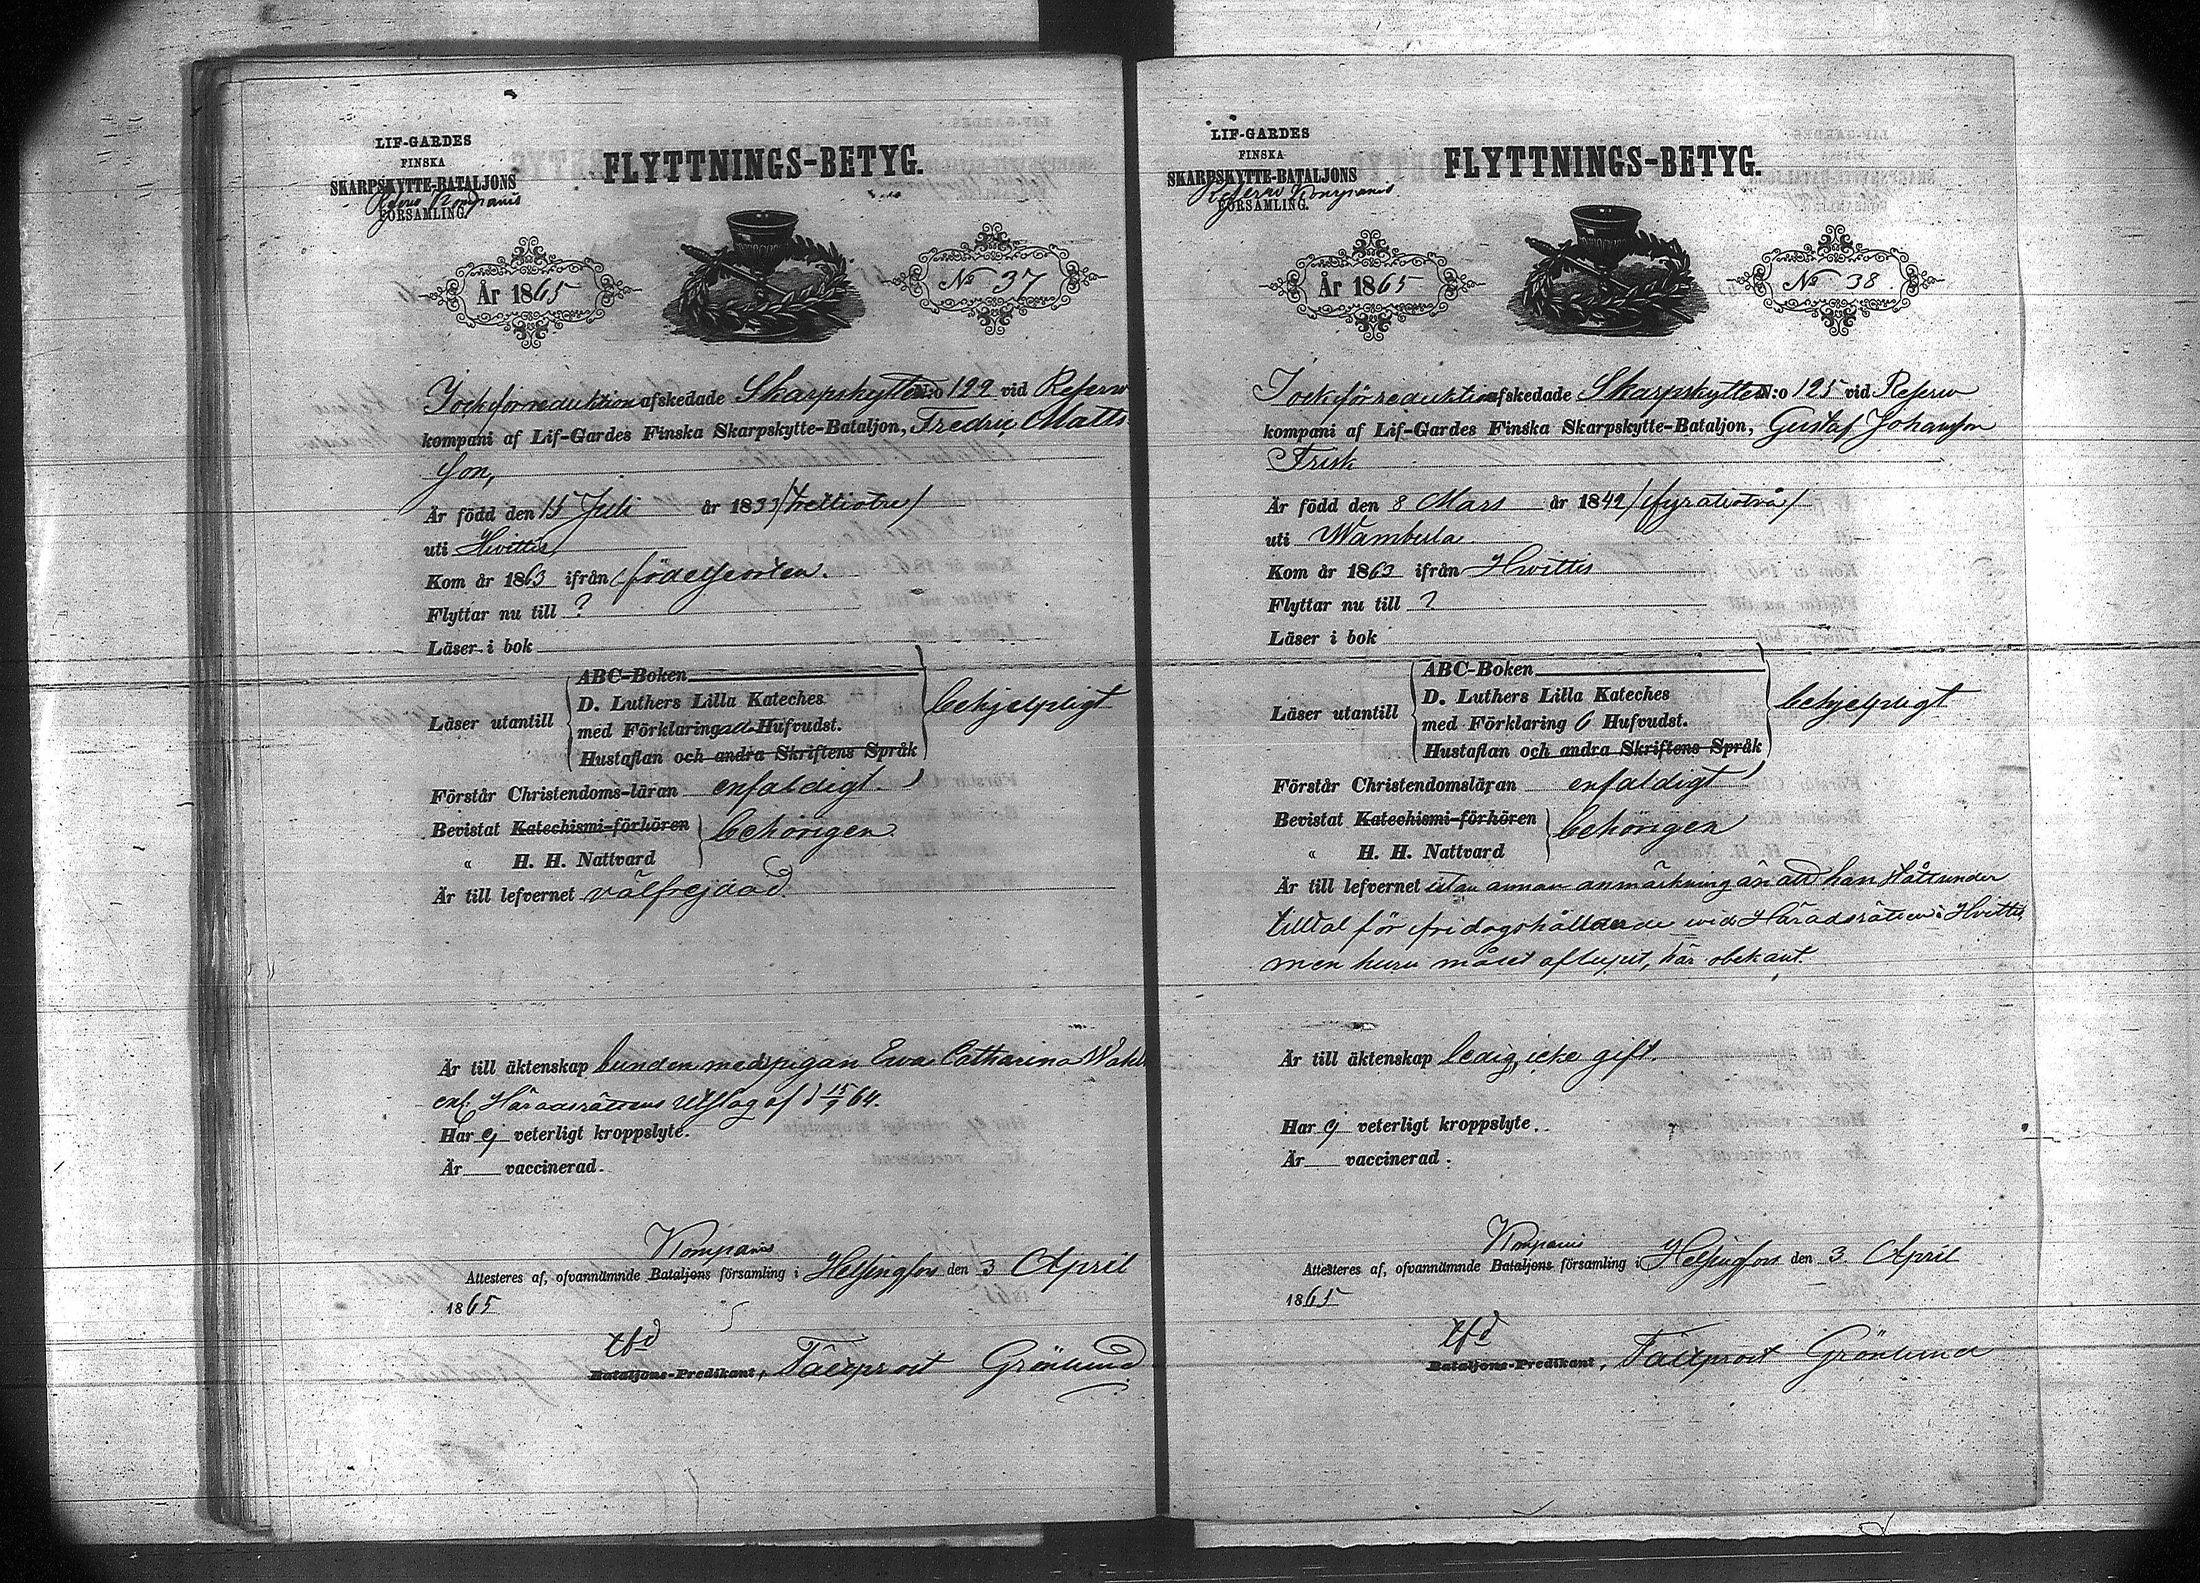 LIF-GARDES
FINSKA
SKARPSKYTTE-BATALJONS
Reserv Kompanis
FÖRSAMLING.
FLYTTNINGS-BETYG.
År 1865
No 37
afskedade Skarpskytten N:o 122 vid Reserv
kompani af Lif-Gardes Finska Skarpskytte-Bataljon, Fredric Matts
son,
Är född den 15 Juli år 1833 /trettiotre/
uti Hvittis
Kom år 1863 ifrån födelseorten.
Flyttar nu till ?
Läser i bok
ABC-Boken
Läser utantill D. Luthers Lilla Kateches
med Förklaring Hufvudst. behjelpligt
Hustaflan och andra Skriftens Språk
Förstår Christendoms-läran enfaldigt.
Bevistat Katechismi-förhören behörigen
" H. H. Nattvard
Är till lefvernet välfrejdad
Är till äktenskap bunden med pigan Eva Catharina
enl. Häradsrättens utslag af d 15/9 64.
Har ej veterligt kroppslyte.
Är vaccinerad.
Kompanis
Attesteres af, ofvannämnde Bataljons församling i Helsingfors den 3 April
1865
tfd
Bataljons-Predikant, Fältprost Grönlund
LIF-GARDES
FINSKA
SKARPSKYTTE-BATALJONS
Reserv Kompanis
FÖRSAMLING.
FLYTTNINGS-BETYG.
År 1865
No 38.
afskedade Skarpskytten N:o 125 vid Reserv
kompani af Lif-Gardes Finska Skarpskytte-Bataljon, Gustaf Johansson
Frisk
Är född den 8 Mars år 1842 /fyratiotvå/
uti Wambula
Kom år 1863 ifrån Hvittis
Flyttar nu till ?
Läser i bok
ABC-Boken
Läser utantill D. Luthers Lilla Kateches
med Förklaring 6 Hufvudst. behjelpligt
Hustaflan och andra Skriftens Språk
Förstår Christendomsläran enfaldigt
Bevistat Katechismi-förhören behörigen
" H. H. Nattvard
Är till lefvernet utan annan anmärkning än att han stått under
tilltal för fridagshållande vid Häradsrätten i Hvittis
men huru målet aflupit, här obekant.
Är till äktenskap ledig, icke gift.
Har ej veterligt kroppslyte.
Är vaccinerad.
Kompanis
Attesteres af, ofvannämnde Bataljons församling i Helsingfors den 3. April
1865
tfd
Bataljons-Predikant, Fältprost Grönlund